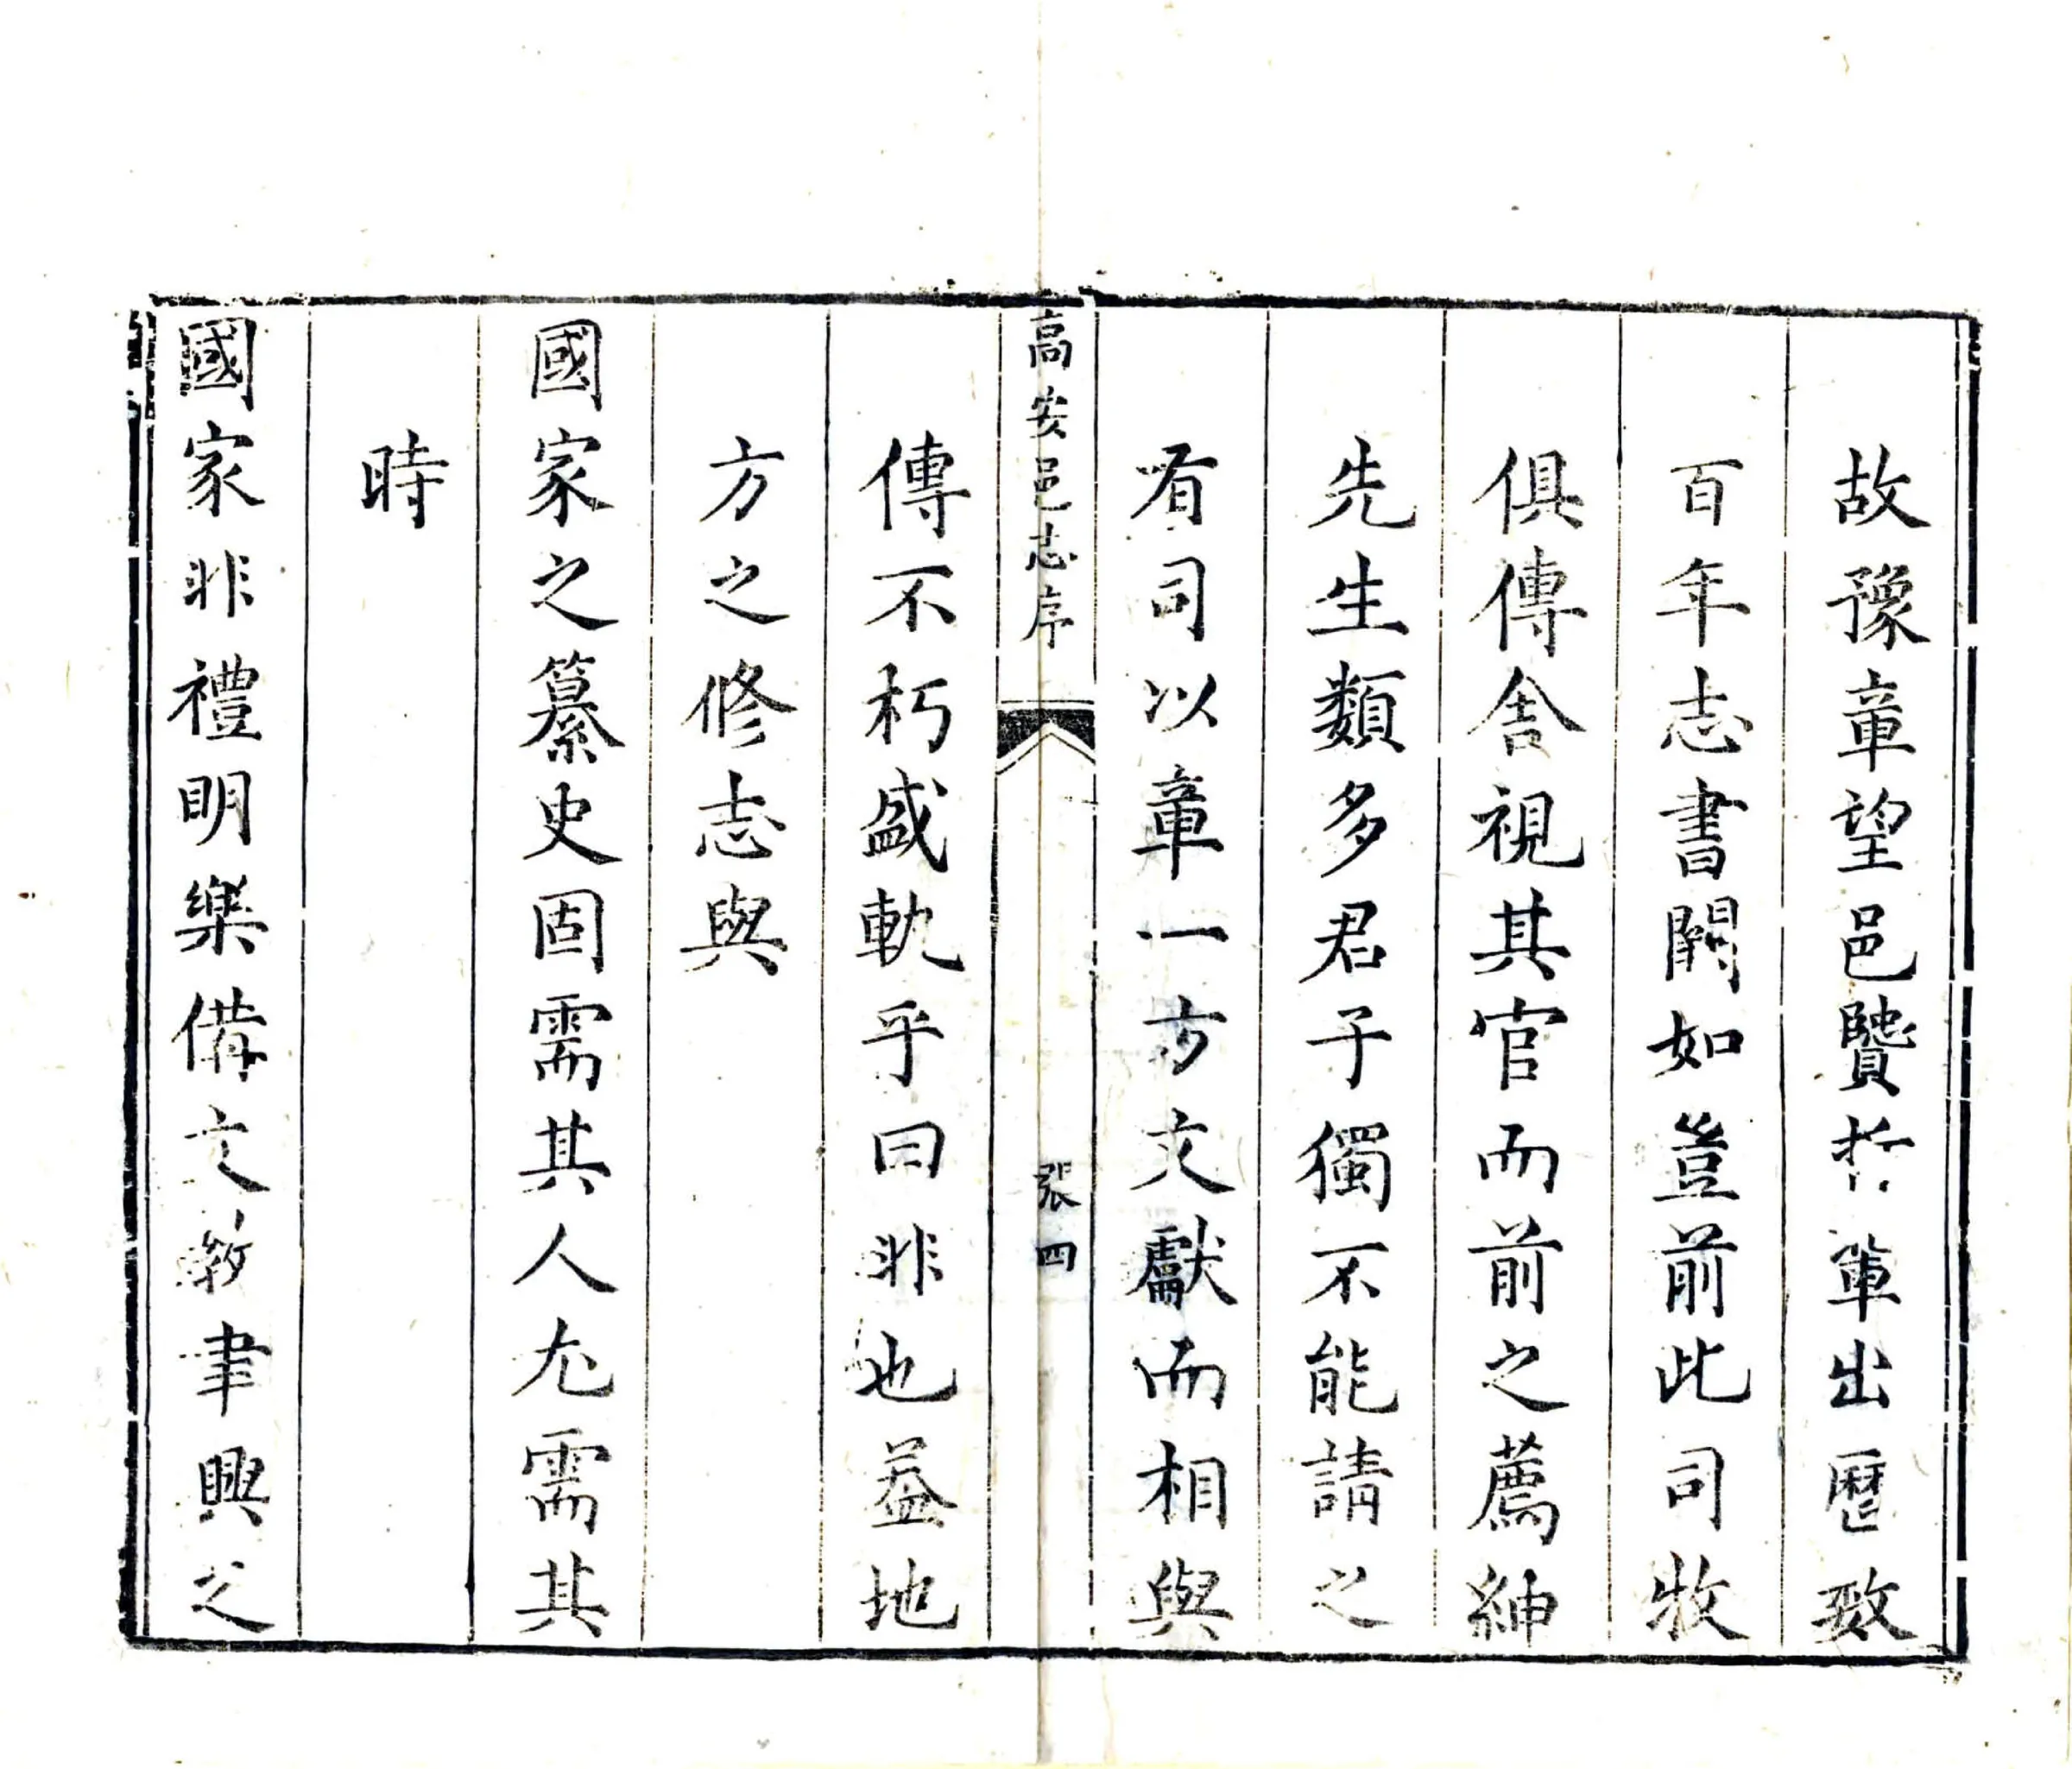 故豫章望邑賢哲輩出歷致
百年志書闕如豈前此司牧
俱傳舍視其官而前之薦紳
先生類多君子獨不能請之
有司以章一方文獻而相與
高安邑志序
張四
傳不朽盛軌乎曰非也蓋地
方之修志與
國家之纂史固需其人尤需其
時
國家非禮明樂備文教聿興之